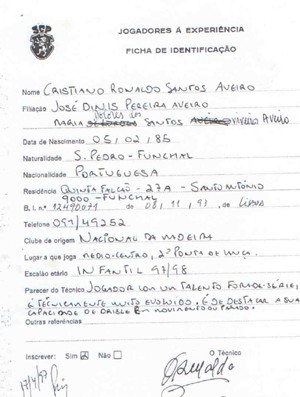 SCP
JOGADORES Á EXPERIÊNCIA
FICHA DE IDENTIFICAÇÃO
Nome CRISTIANO RONALDO SANTOS AVEIRO
Filiação JOSÉ DINIS PEREIRA AVEIRO
Dolores dos
MARIA SANTOS VIVEIROS AVEIRO
Data de Nascimento 05, 02, 85
Naturalidade S. PEDRO - FUNCHAL
Nacionalidade PORTUGUESA
Residência QUINTA FALCÃO - 27A - SANTO ANTÓNIO
9000 - FUNCHAL
B. I. nº 12490071 de 08, 11, 93, de Lisboa
Telefone 091/49252
Clube de origem NACIONAL DA MADEIRA
Lugar a que joga MÉDIO-CENTRO, 2º PONTA DE LANÇA
Escalão etário INFANTIL 97/98
Parecer do Técnico JOGADOR COM UM TALENTO FORA-DE-SÉRIE,
E TÉCNICAMENTE MUITO EVOLUIDO. É DE DESTACAR A SUA
CAPACIDADE DE DRIBLE EM MOVIMENTO OU PARADO.
Outras referências
Inscrever: Sim Não O Técnico
17/4/97